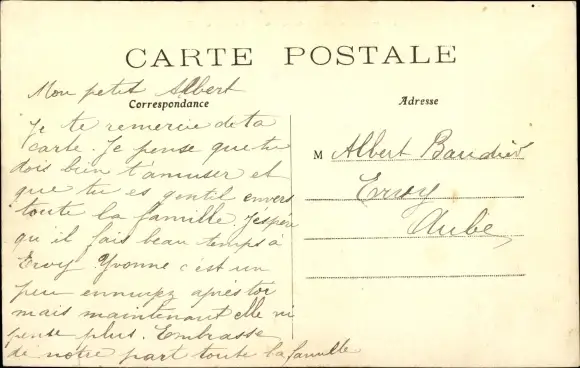 CARTE POSTALE
Mon petit Albert
Correspondance
Je te remercie de ta
carte. Je pense que tu
dois bien t'amuser et
que tu es gentil envers
toute la famille. J'espère
qu'il fais beau temps à
Ervy. Yvonne c'est un
peu ennuyez après toi
mais maintenant elle ni
pense plus. Embrasse
de notre part toute la famille
Adresse
M Albert Baudier
Ervy
Aube